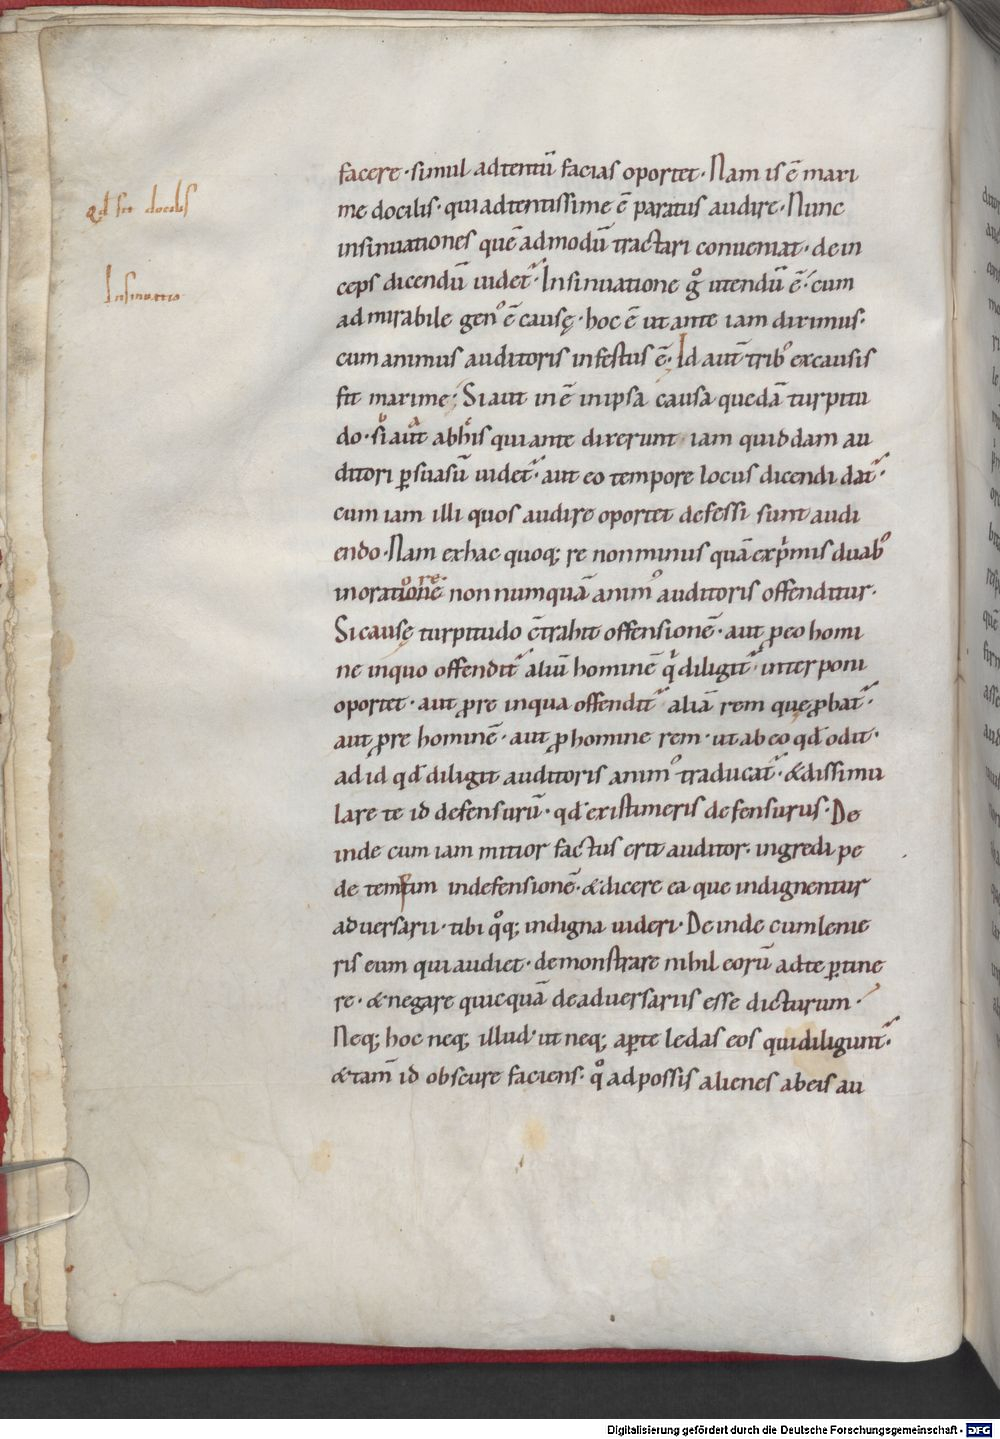 qd sit docilis
Insinuatio
facere · simul adtentū facias oportet · Nam is ē maxi
me docilis · qui adtentissime ē paratus audire · Nunc
insinuationes quē admodū tractari conueniat · dein
ceps dicendū uidet᷑ · Insinuatione gͦ utendū ē · cum
admirabile genꝰ ē causę · hoc ē ut ante iam diximus ·
cum animus auditoris infestus ē · Id aut̄ tribꝰ ex causis
fit maxime · Si aut in ē in ipsa causa quedā turpitu
do · si aut̄ ab his qui ante dixerunt iam quiddam au
ditori ꝑsuasū uidet᷑ · aut eo tempore locus dicendi dat᷑ ·
cum iam illi quos audire oportet defessi sunt audi
endo · Nam ex hac quoq; re non minus quā ex pͥmis duabꝰ
in oratione non numquā animꝰ auditoris offenditur ·
Si causę turpitudo c̄trahit offensionē · aut ꝓ eo homi
ne in quo offendit᷑ aliū hominē qͥ diligit᷑ · interponi
oportet · aut ꝓ re in qua offendit᷑ aliā rem que ꝓbat᷑ ·
aut ꝓ re hominē · aut ꝓ homine rem · ut ab eo qd̄ odit ·
ad id qd̄ diligit auditoris animꝰ traducat᷑ · & dissimu
lare te id defensurū · qd̄ existimeris defensurus · De
inde cum iam mitior factus erit auditor · ingredi pe
de temtim in defensionē · & dicere ea que indignentur
aduersarii · tibi qͦq; indigna uideri · Deinde cum lenie
ris eum qui audiet · demonstrare nihil eorū ad te ꝑtine
re · & negare quicquā de aduersariis esse dicturum ·
Neq; hoc neq; illud · ut neq; aꝑte ledas eos qui diligunt᷑ ·
& tam̄ id obscure faciens · qͦ ad possis alienes ab eis au
Digitalisierung gefördert durch die Deutsche Forschungsgemeinschaft - DFG